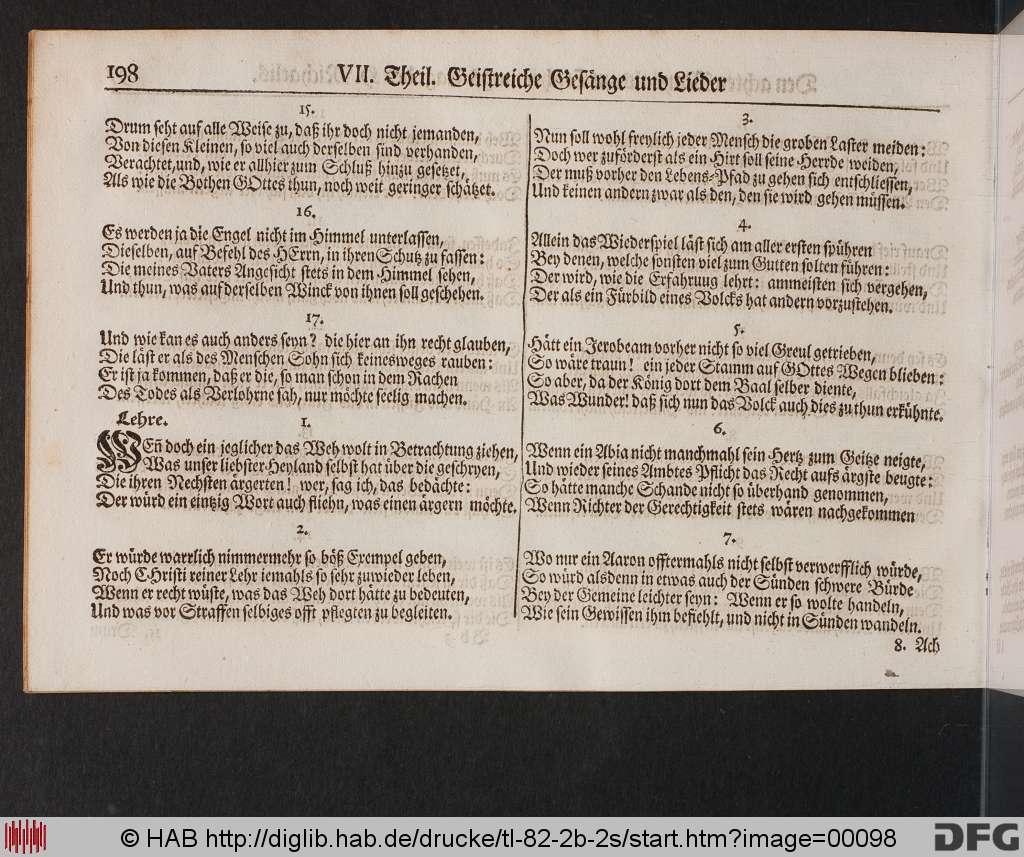 198
VII. Theil. Geistreiche Gesänge und Lieder
15.
Drum seht auf alle Weise zu, daß ihr doch nicht jemanden,
Von diesen Kleinen, so viel auch derselben sind verhanden,
Verachtet, und, wie er allhier zum Schluß hinzu gesetzet,
Als wie die Bothen GOttes thun, noch weit geringer schätzet.
16.
Es werden ja die Engel nicht im Himmel unterlassen,
Dieselben, auf Befehl des HErrn, in ihren Schutz zu fassen:
Die meines Vaters Angesicht stets in dem Himmel sehen,
Und thun, was auf derselben Winck von ihnen soll geschehen.
17.
Und wie kan es auch anders seyn? die hier an ihn recht glauben,
Die läst er als des Menschen Sohn sich keinesweges rauben:
Er ist ja kommen, daß er die, so man schon in dem Rachen
Des Todes als Verlohrne sah, nur möchte seelig machen.
Lehre. 1.
WEñ doch ein jeglicher das Weh wolt in Betrachtung ziehen,
Was unser liebster Heyland selbst hat über die geschryen,
Die ihren Nechsten ärgerten! wer, sag ich, das bedächte:
Der würd ein eintzig Wort auch fliehn, was einen ärgern möchte.
2.
Er würde warrlich nimmermehr so böß Exempel geben,
Noch CHristi reiner Lehr iemahls so sehr zuwieder leben,
Wenn er recht wüste, was das Weh dort hätte zu bedeuten,
Und was vor Straffen selbiges offt pflegten zu begleiten.
3.
Nun soll wohl freylich jeder Mensch die groben Laster meiden:
Doch wer zuförderst als ein Hirt soll seine Herrde weiden,
Der muß vorher den Lebens-Pfad zu gehen sich entschliessen,
Und keinen andern zwar als den, den sie wird gehen müssen.
4.
Allein das Wiederspiel läst sich am aller ersten spühren
Bey denen, welche sonsten viel zum Gutten solten führen:
Der wird, wie die Erfahruug lehrt: ammeisten sich vergehen,
Der als ein Fürbild eines Volcks hat andern vorzustehen.
5.
Hätt ein Jerobeam vorher nicht so viel Greul getrieben,
So wäre traun! ein jeder Stamm auf GOttes Wegen blieben:
So aber, da der König dort dem Baal selber diente,
Was Wunder! daß sich nun das Volck auch dies zu thun erkühnte.
6.
Wenn ein Abia nicht manchmahl sein Hertz zum Geitze neigte,
Und wieder seines Ambtes Pflicht das Recht aufs ärgste beugte:
So hätte manche Schande nicht so überhand genommen,
Wenn Richter der Gerechtigkeit stets wären nachgekommen
7.
Wo nur ein Aaron offtermahls nicht selbst verwerfflich würde,
So würd alsdenn in etwas auch der Sünden schwere Bürde
Bey der Gemeine leichter seyn: Wenn er so wolte handeln,
Wie sein Gewissen ihm befiehlt, und nicht in Sünden wandeln.
8. Ach
© HAB http://diglib.hab.de/drucke/tl-82-2b-2s/start.htm?image=00098
DFG